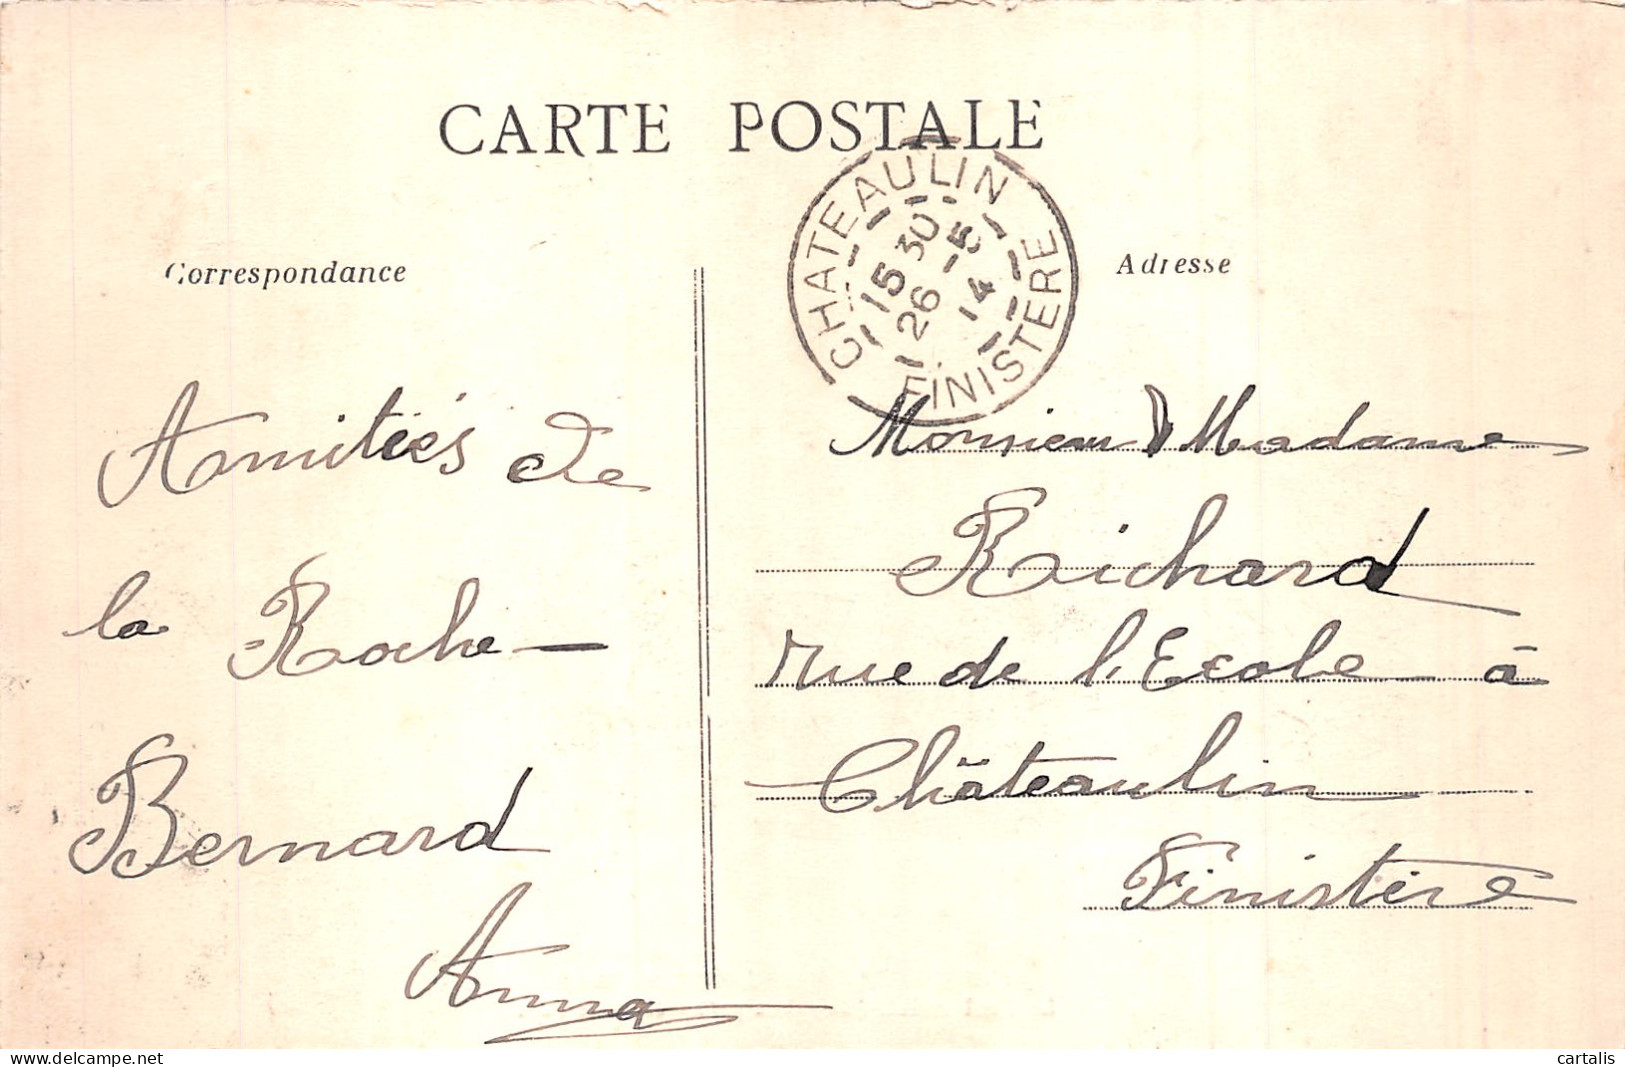 CARTE POSTALE
CHATEAULIN
15 30
26 -5
14
FINISTERE
Correspondance
Adresse
Amitiés de
la Roche-
Bernard
Anna
Monsieur & Madame
Richard
rue de l'Ecole à
Châteaulin
Finistère
delcampe.net
cartalis